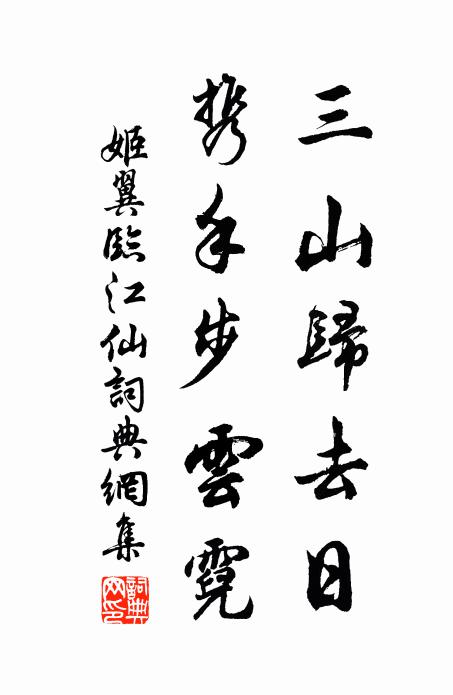 三山歸去日
携手步雲霓
姬翼臨江仙詞典網集
詞典網印